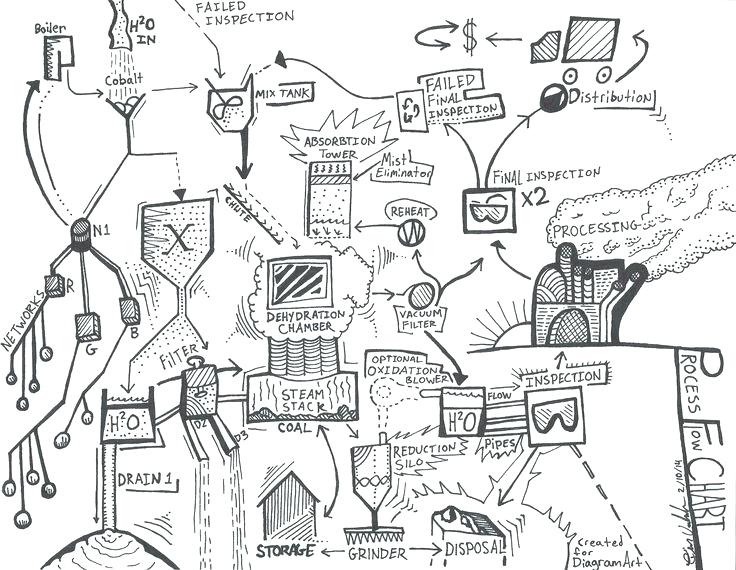 FAILED
INSPECTION
Boiler
H²O
IN
Cobalt
MIX TANK
$
FAILED
FINAL
INSPECTION
Distribution
ABSORBTION
TOWER
Mist
Eliminator
FINAL INSPECTION
X2
CHUTE
REHEAT
N1
X
PROCESSING
NETWORKS
R
G
B
DEHYDRATION
CHAMBER
VACUUM
FILTER
FILTER
OPTIONAL
OXIDATION
BLOWER
STEAM
STACK
COAL
H²O
D2
D3
H²O
FLOW
INSPECTION
PIPES
REDUCTION
SILO
DRAIN 1
STORAGE
GRINDER
DISPOSAL
PROCESS FLOW CHART
Created
for
DiagramArt